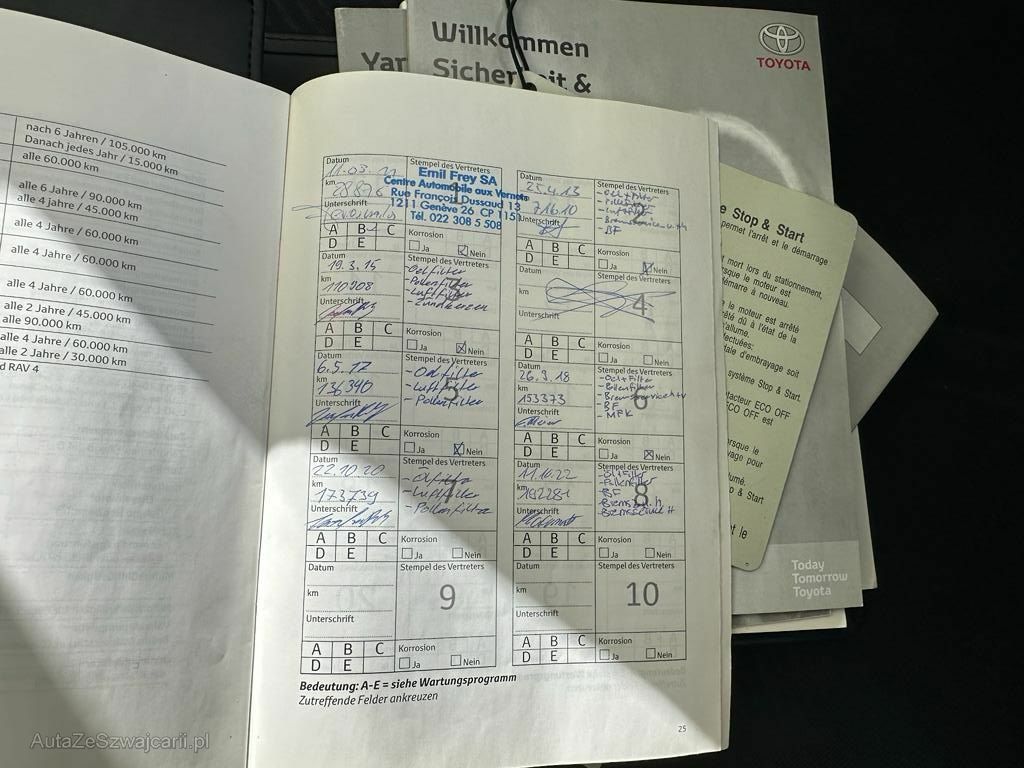 Willkommen
Sicherheit &
Yar
TOYOTA
nach 6 Jahren / 105.000 km
Danach jedes Jahr / 15.000 km
alle 60.000 km
alle 6 Jahre / 90.000 km
alle 4 Jahre / 45.000 km
alle 4 Jahre / 60.000 km
alle 4 Jahre / 60.000 km
alle 4 Jahre / 60.000 km
alle 2 Jahre / 45.000 km
alle 90.000 km
alle 4 Jahre / 60.000 km
alle 2 Jahre / 30.000 km
d RAV 4
Datum
km
28876
Unterschrift
Stempel des Vertreters
1
Emil Frey SA
Centre Automobile aux Vernets
Rue François Dussaud 13
1211 Genève 26 CP 115
Tél. 022 308 5 508
A B C
D E
Korrosion
Ja Nein
Datum
25.4.13
km
71610
Unterschrift
Stempel des Vertreters
2
- Oel+Filter
- Pollenfilter
- Luftfilter
- BF
A B C
D E
Korrosion
Ja Nein
Datum
19.3.15
km
110908
Unterschrift
Stempel des Vertreters
3
- Oelfilter
- Pollenfilter
- Luftfilter
- Zündkerzen
A B C
D E
Korrosion
Ja Nein
Datum
km
Unterschrift
Stempel des Vertreters
4
A B C
D E
Korrosion
Ja Nein
Datum
6.3.17
km
136340
Unterschrift
Stempel des Vertreters
5
- Oelfilter
- Luftfilter
- Pollenfilter
A B C
D E
Korrosion
Ja Nein
Datum
26.9.18
km
153373
Unterschrift
Stempel des Vertreters
6
- Oel+Filter
- Pollenfilter
- BF
- MFK
A B C
D E
Korrosion
Ja Nein
Datum
22.10.20
km
173739
Unterschrift
Stempel des Vertreters
7
- Ölfilter
- Luftfilter
- Pollenfilter
A B C
D E
Korrosion
Ja Nein
Datum
11.10.22
km
Unterschrift
Stempel des Vertreters
8
- Ölfilter
- Pollenfilter
- BF
A B C
D E
Korrosion
Ja Nein
Datum
km
Unterschrift
Stempel des Vertreters
9
A B C
D E
Korrosion
Ja Nein
Datum
km
Unterschrift
Stempel des Vertreters
10
A B C
D E
Korrosion
Ja Nein
Bedeutung: A-E = siehe Wartungsprogramm
Zutreffende Felder ankreuzen
25
e Stop & Start
permet l'arrêt et le démarrage
mort lors du stationnement,
rsque le moteur est
démarre à nouveau.
le moteur est arrêté
rêté dû à l'état de la
s'allume.
fectuées:
dale d'embrayage soit
système Stop & Start.
ntacteur ECO OFF
ECO OFF est
orsque le
yage pour
umé.
p & Start
t le
Today
Tomorrow
Toyota
AutaZeSzwajcarii.pl